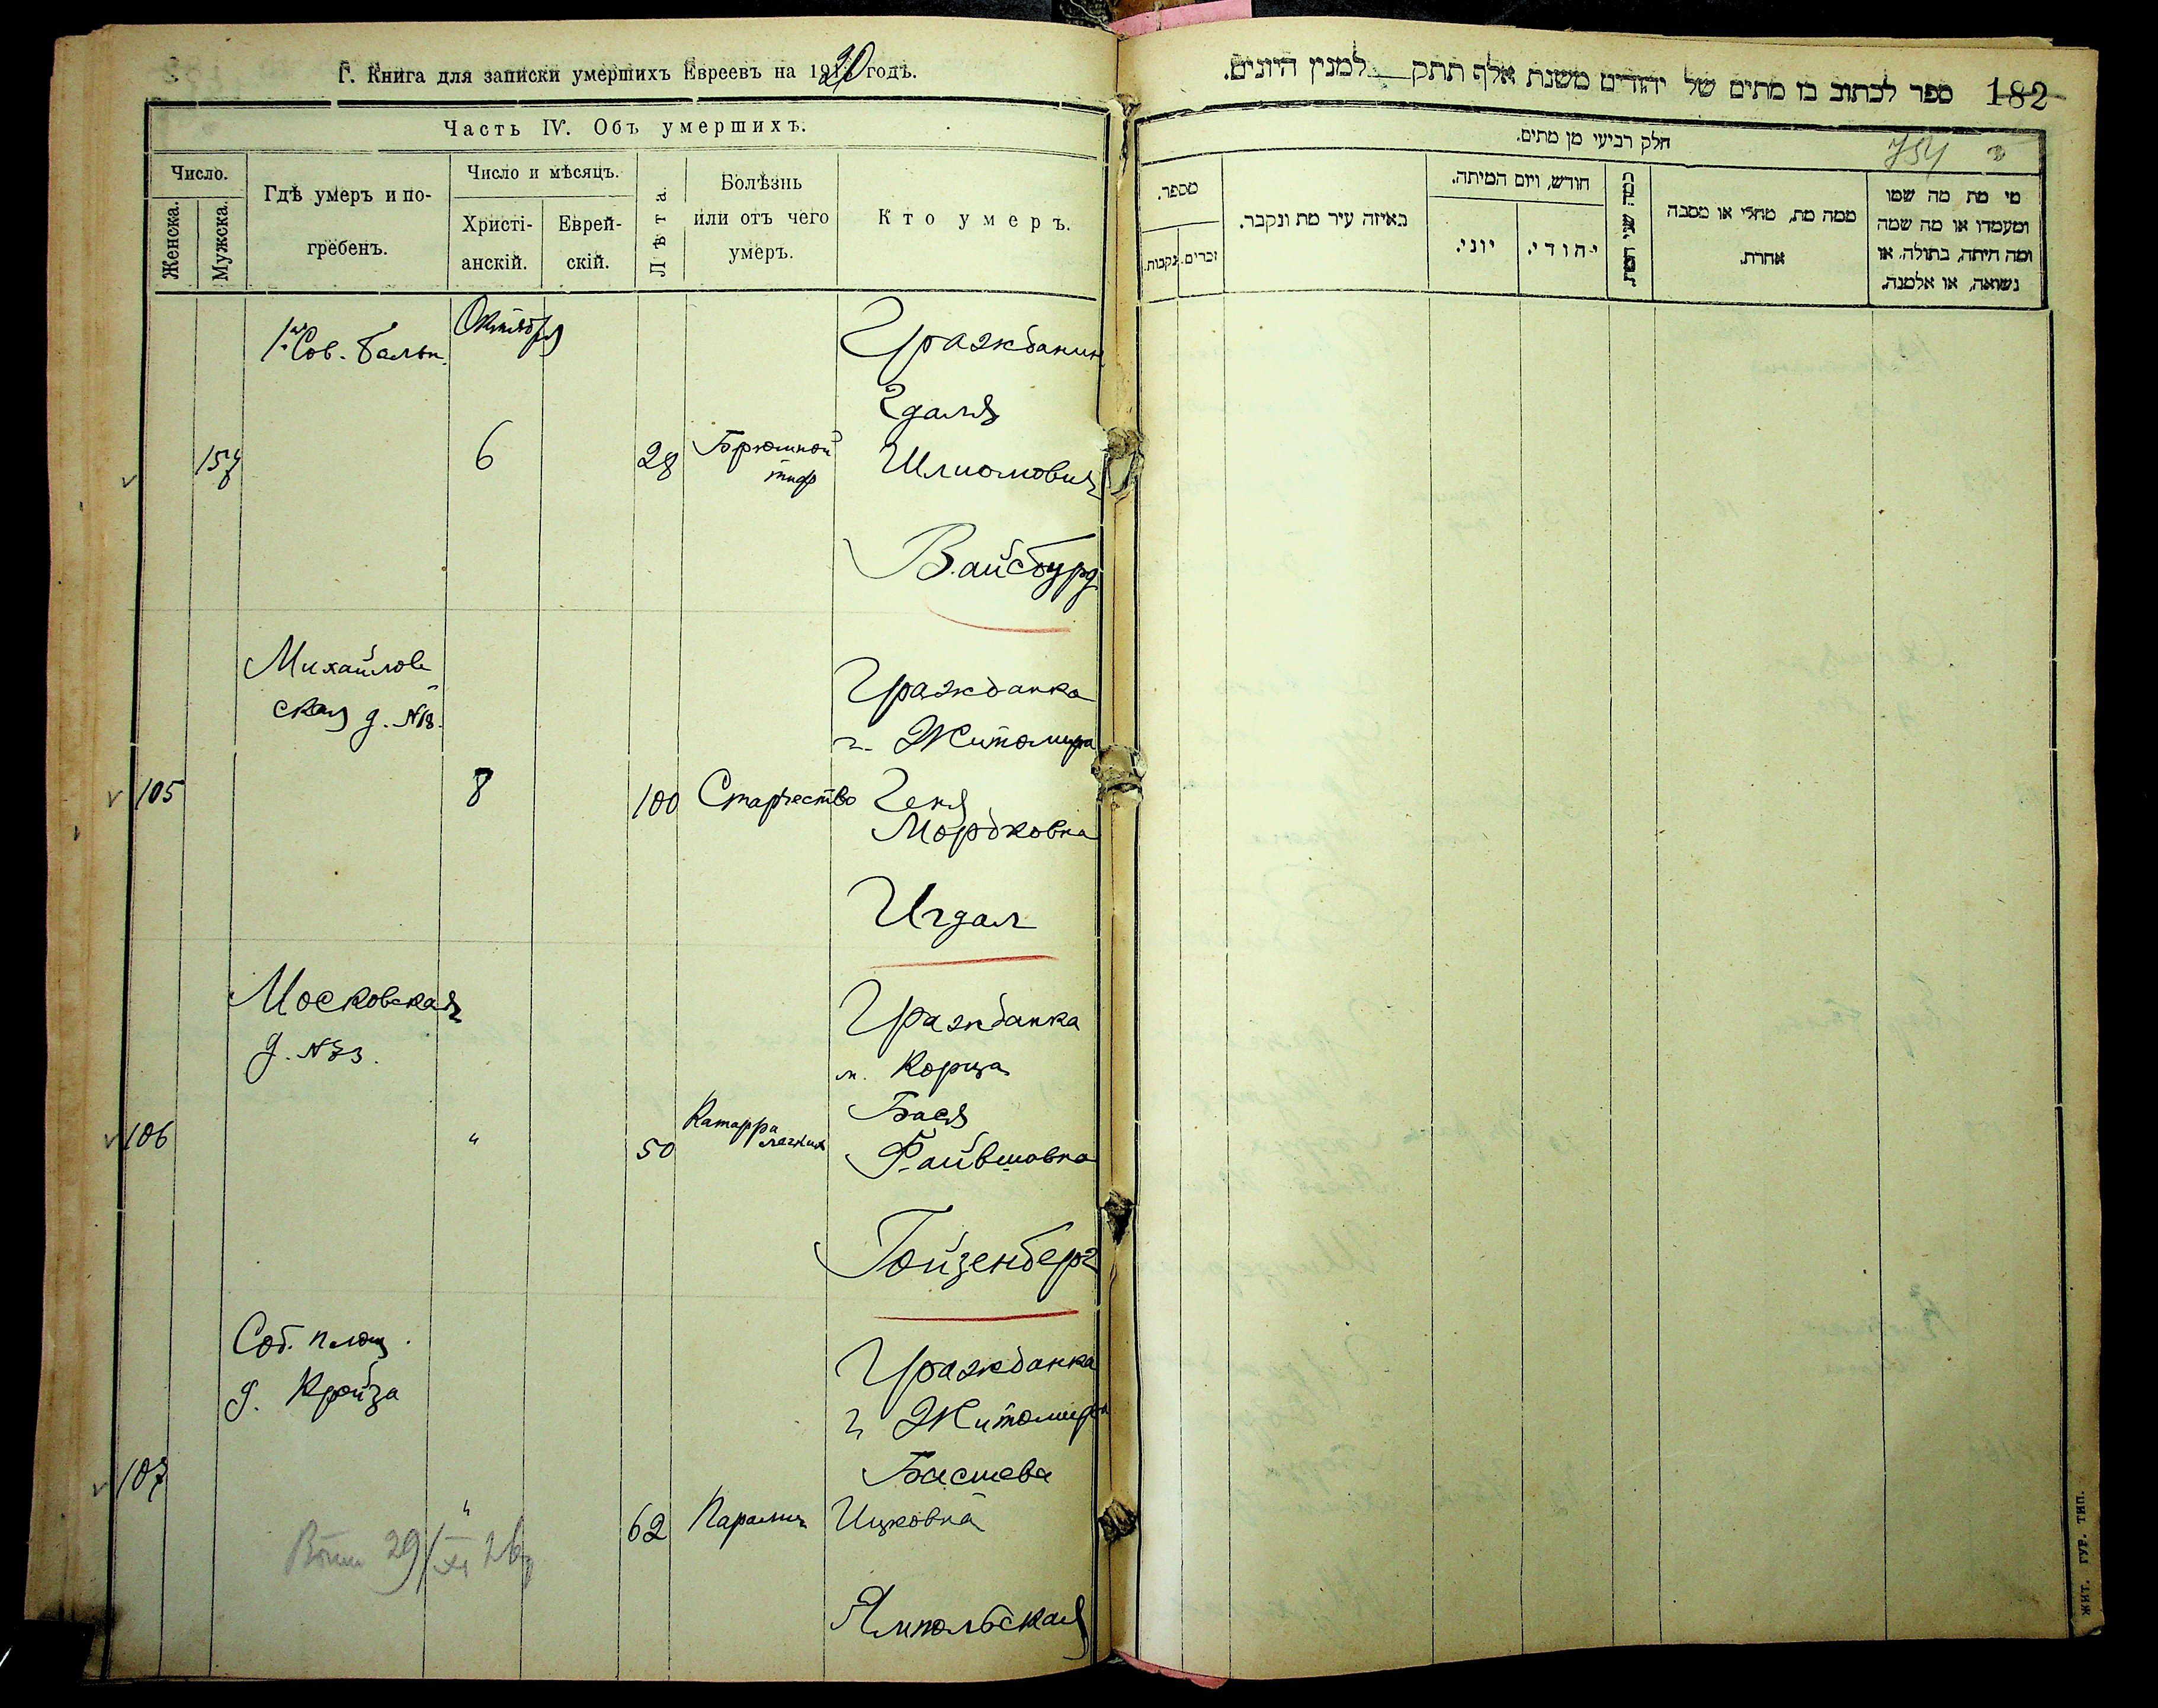 Г. Книга для записки умершихъ Евреевъ на 1920 годъ.
Часть IV. Объ умершихъ.
Число.
Женска.
Мужска.
Гдѣ умеръ и по-
гребенъ.
Число и мѣсяцъ.
Христі-
анскій.
Еврей-
скій.
Лѣта.
Болѣзнь
или отъ чего
умеръ.
Кто умеръ.
1ая Сов. больн.
Октября
Гражданин
Гдаля
157
6
28
Брюшной
тиф
Шлиомович
Вайсбурд
Михайлов
ская д. №18.
Гражданка
г. Житомира
105
8
100
Старчество
Геня
Мордковна
Игдал
Московская
д. №73.
Гражданка
м. Корца
Бася
106
"
50
Катарра
легких
Файвшовна
Гойзенберг
Соб. площ.
д. Кройза
Гражданка
г. Житомира
Басшева
107
"
62
Паралич
Ицковна
Ямпольская
ספר לכתוב בו מתים של יהודים משנת אלף תתק למנין היונים.
182
754
חלק רביעי מן מתים.
מספר.
נקבות.
זכרים.
באיזה עיר מת ונקבר.
חודש, ויום המיתה.
יוני.
יהודי.
כמה שני המת
ממה מת, מחלי או מסבה
אחרת.
מי מת מה שמו
ומעמדו או מה שמה
ומה היתה, בתולה, או
נשואה, או אלמנה.
ЖИТ. ГУР. ТИП.